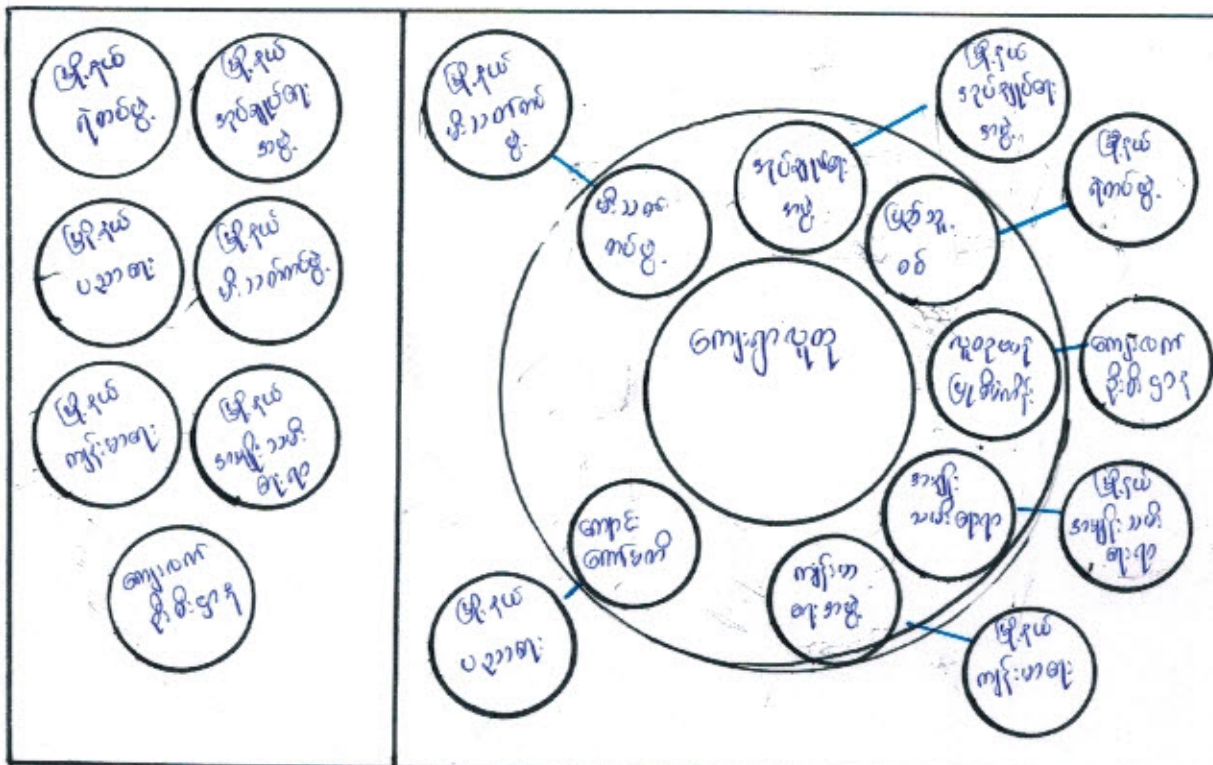 မြို့နယ်
ရဲတပ်ဖွဲ့
မြို့နယ်
အုပ်ချုပ်ရေး
အဖွဲ့
မြို့နယ်
ပညာရေး
မြို့နယ်
မီးသတ်တပ်ဖွဲ့
မြို့နယ်
ကျန်းမာရေး
မြို့နယ်
အမျိုးသမီး
ရေးရာ
ကျေးလက်
ဦးစီးဌာန
မြို့နယ်
မီးသတ်တပ်
ဖွဲ့
မီးသတ်
တပ်ဖွဲ့
အုပ်ချုပ်ရေး
အဖွဲ့
မြို့နယ်
အုပ်ချုပ်ရေး
အဖွဲ့
ပြည်သူ့
စစ်
မြို့နယ်
ရဲတပ်ဖွဲ့
ကျေးရွာလူထု
မြစိမ်းရောင်
ကျေးလက်
ဦးစီးဌာန
အမျိုး
သမီးရေးရာ
မြို့နယ်
အမျိုးသမီး
ရေးရာ
ကျန်းမာ
ရေးအဖွဲ့
မြို့နယ်
ကျန်းမာရေး
ကျောင်း
ကော်မတီ
မြို့နယ်
ပညာရေး